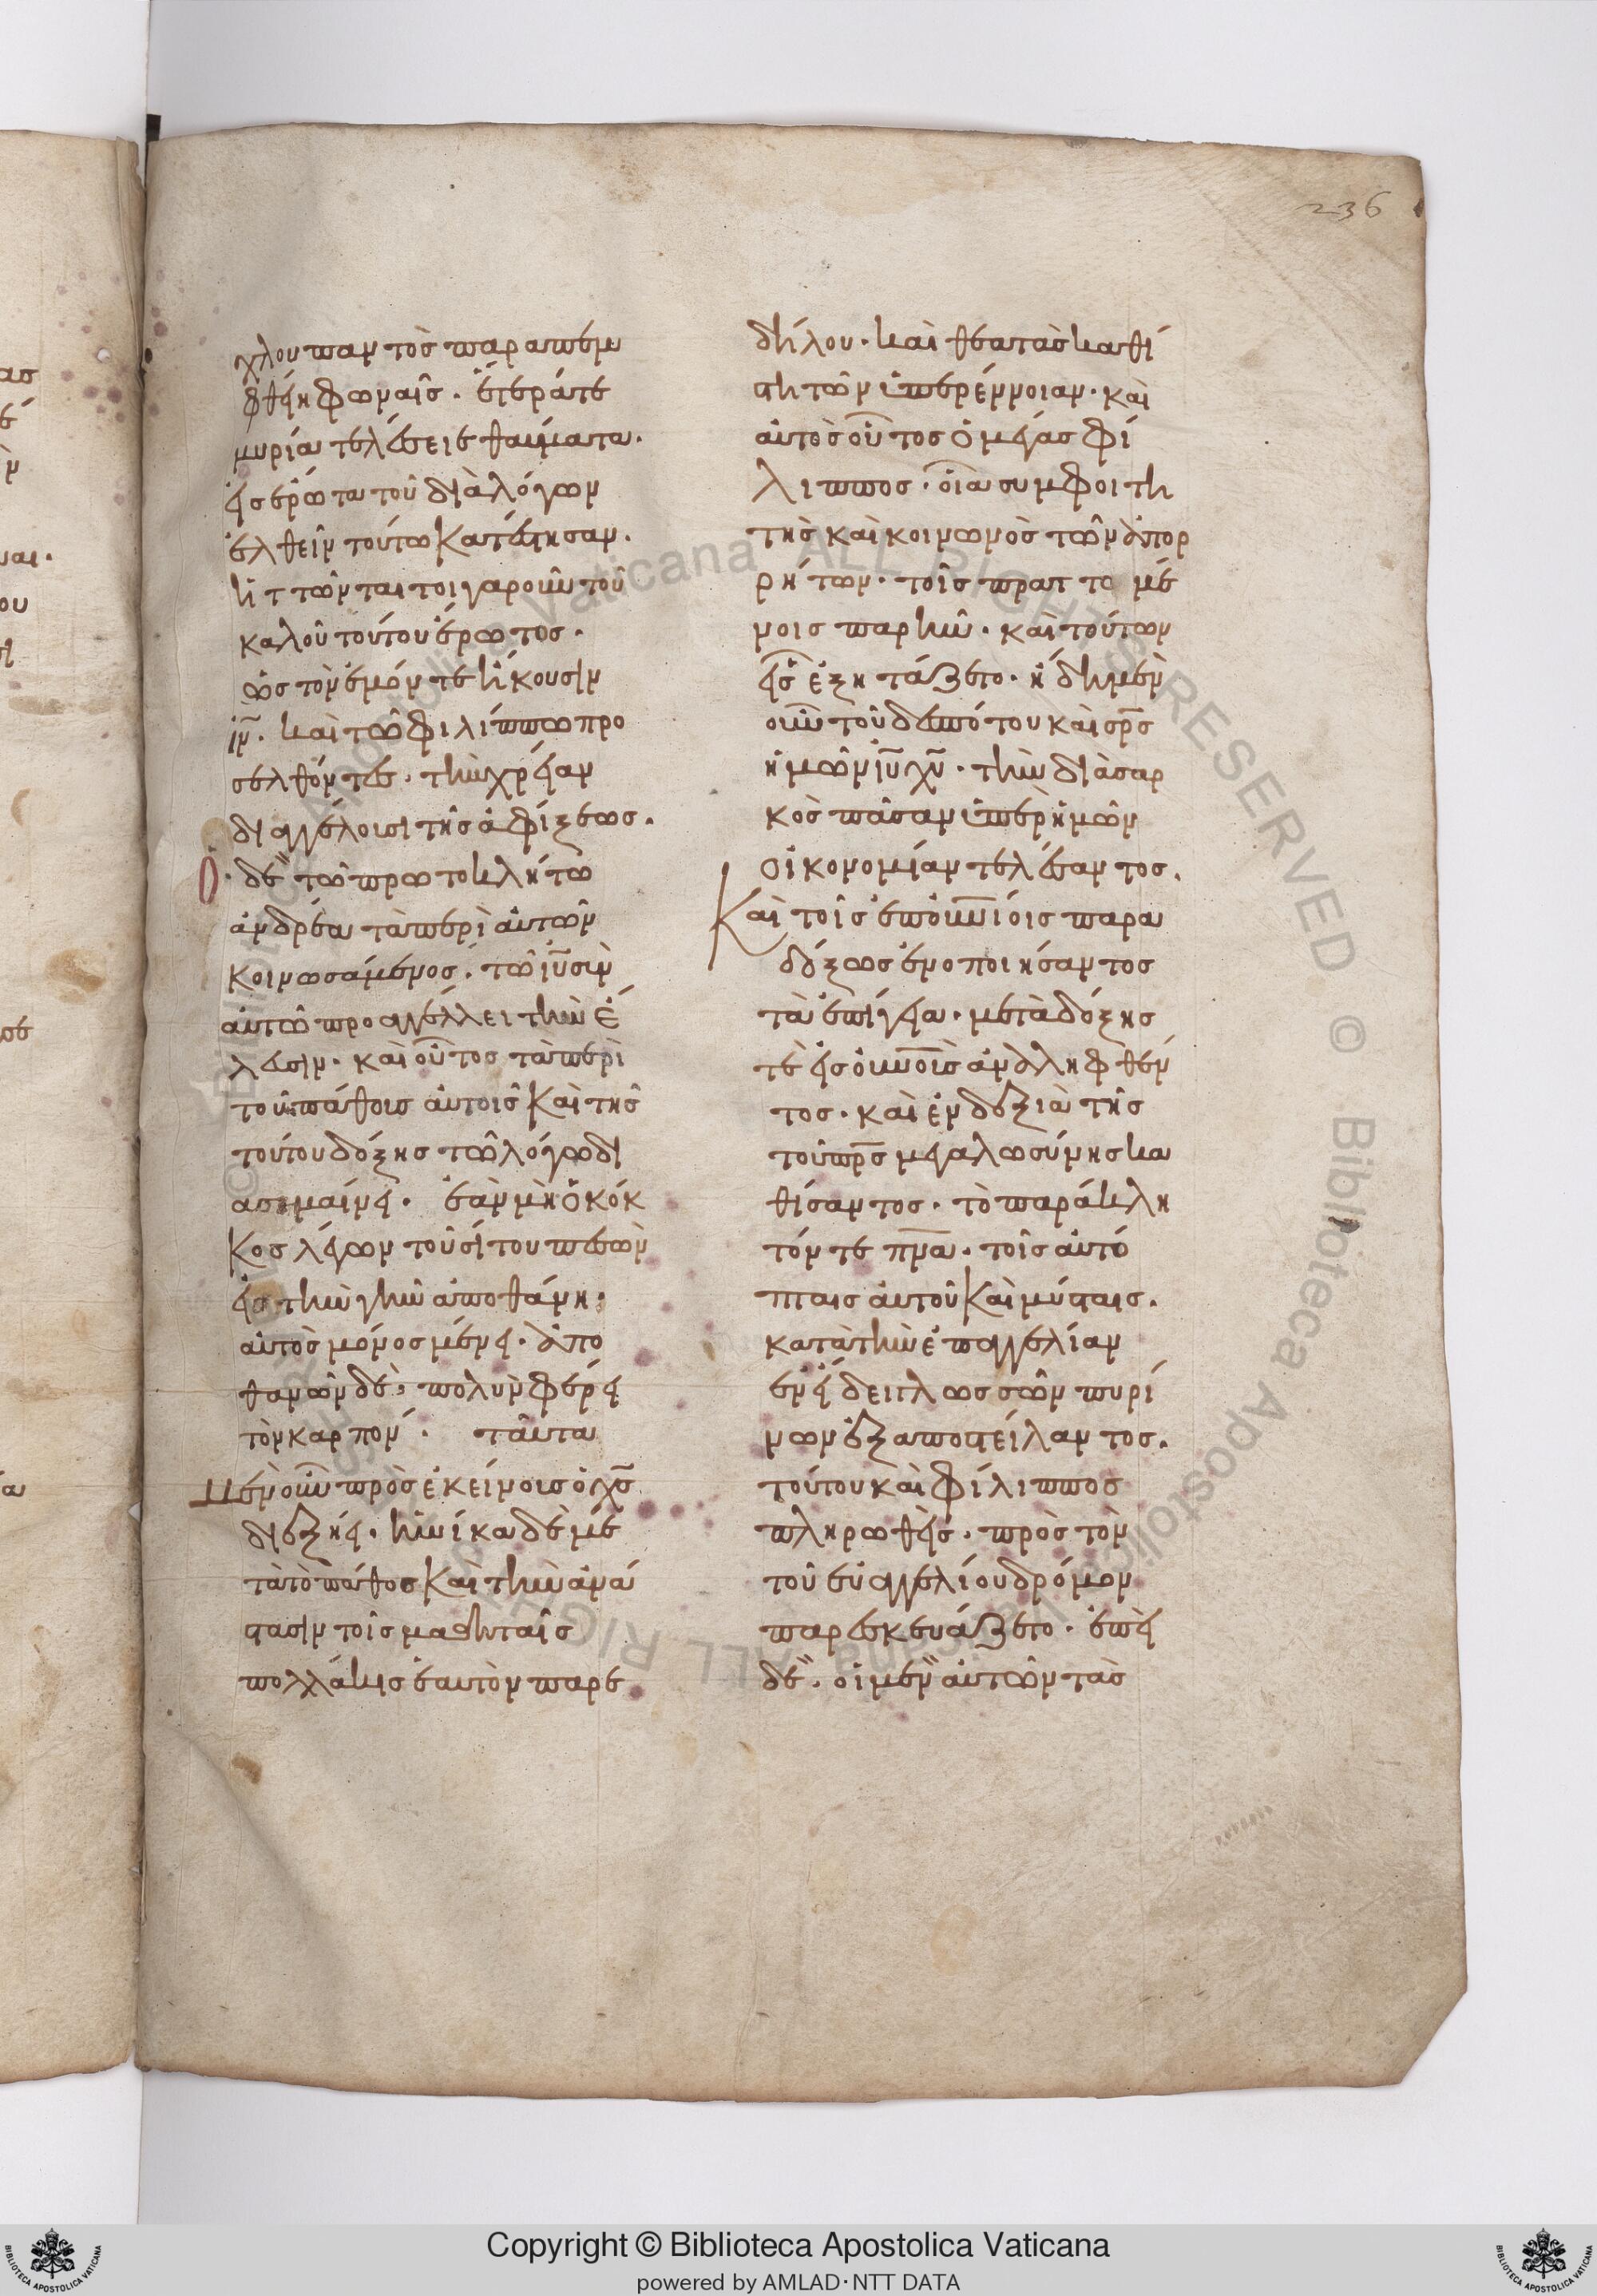 236
χλου παντὸς παραπεμ
φθείη φωναῖς. ἕτερά τε
μυρία τελέσειε θαύματα.
εἰς ἔρωτα τοῦ διαλόγων
ἐλθεῖν τούτω κατέστησαν.
ἡττῶνται τοιγαροῦν τοῦ
καλοῦ τούτου ἔρωτος.
ὡς τὸν ἐμόν τε ἥκουσιν
ιν̅. καὶ τῶ φιλίππω προ
σελθόντες. τὴν χρείαν
διαγγέλουσι τῆς ἀφίξεως.
Ὁ δὲ τῶ πρωτοκλήτω
ἀνδρέα τὰ περὶ αὐτῶν
κοινωσάμενος. τῶ ιυ̅ σὺν
αὐτῶ προαγγέλλει τὴν ἔ
λευσιν. καὶ οὗτος τὰ περὶ
τοῦ πάθους αὐτοῖς καὶ τῆς
τούτου δόξης τῶ λόγω δι
ασημαίνει. ἐὰν μὴ ὁ κόκ
κος λέγων τοῦ σίτου πεσὼν
εἰς τὴν γῆν ἀποθάνη.
αὐτὸς μόνος μένει. ἀπο
θανὼν δὲ, πολὺν φέρει
τὸν καρπόν. ταῦτα
μὲν οὖν πρὸς ἐκείνους ὁ χς̅
διεξήει. ἡνίκα δὲ με
τὰ τὸ πάθος καὶ τὴν ἀνά
στασιν τοῖς μαθηταῖς
πολλάκις ἑαυτὸν παρε
δήλου. καὶ θεατὰς καθί
στη τῶν ὑπερέννοιαν. καὶ
αὐτὸς οὗτος ὁ μέγας φί
λιππος. οἷα συμφοιτη
τὴς καὶ κοινωνὸς τῶν ἀπορ
ρήτων. τοῖς πραττομέ
νοις παρῆν. καὶ τούτων
εἷς ἐξητάζετο. ἤδη μὲν
οὖν τοῦ δεσπότου καὶ σρ̅ς
ἡμῶν ιυ̅ χυ̅. τὴν διὰ σαρ
κὸς πᾶσαν ὑπὲρ ἡμῶν
οἰκονομίαν τελέσαντος.
Καὶ τοῖς ἐπουνίοις παρα
δόξως ἑνοποιήσαντος
τὰ ἐπίγεια. μετὰ δόξης
τὲ εἰς οὐνοὺς ἀναληφθέν
τος. καὶ ἐν δεξιὰ τῆς
τοῦ πρ̅ς μεγαλωσύνης κα
θίσαντος. τὸ παράκλη
τόν τε πν̅α. τοῖς αὐτό
πταις αὐτοῦ καὶ μύσταις.
κατὰ τὴν ἐπαγγελίαν
ἐν εἴδει γλωσσῶν πυρί
νων ἐξαποστείλαντος.
τούτου καὶ φίλιππος
πληρωθεὶς. πρὸς τὸν
τοῦ εὐαγγελίου δρόμον
παρεσκευάζετο. ἐπεὶ
δὲ. οἱ μὲν αὐτῶν τὰς
Copyright © Biblioteca Apostolica Vaticana
powered by AMLAD·NTT DATA